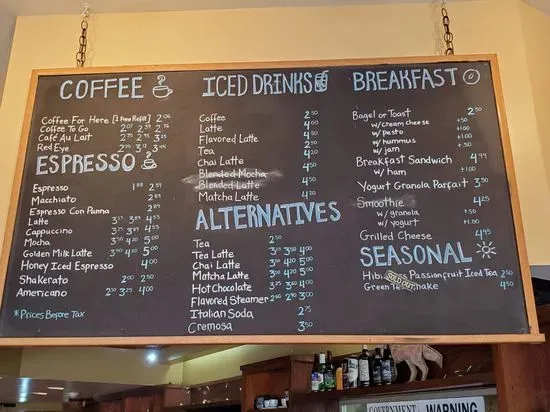 COFFEE
Coffee For Here [1 Free Refill] 2.06
Coffee To Go 2.07 2.51 2.76
Café Au Lait 2.75 3.15
Red Eye 3.75
ESPRESSO
Espresso 1.88 2.59
Macchiato 2.89
Espresso Con Panna 2.89
Latte 3.15 3.85 4.55
Cappuccino 3.15
Mocha 5.00
Golden Milk Latte 5.00
Honey Iced Espresso 4.00
Shakerato 2.00
Americano 4.00
*Prices Before Tax
ICED DRINKS
Coffee 2.50
Latte
Flavored Latte 4.50
Tea
Chai Latte
Blended Mocha
Blended Latte
Matcha Latte 4.20
ALTERNATIVES
Tea 2.50
Tea Latte 3.15 3.50 4.00
Chai Latte 5.00
Matcha Latte 5.00
Hot Chocolate 4.00
Flavored Steamer 2.60 2.90 3.00
Italian Soda 2.75
Cremosa 3.50
BREAKFAST
Bagel or Toast 2.50
w/cream cheese +.50
w/pesto +1.00
w/hummus
w/jam +.50
Breakfast Sandwich 4.99
w/ham +1.00
Yogurt Granola Parfait 3.50
Smoothie 4.25
w/granola +.50
w/yogurt +1.00
Grilled Cheese 4.95
SEASONAL
Passionfruit Iced Tea 2.50
SOLD OUT
Green Tea 4.50
GOVERNMENT
WARNING